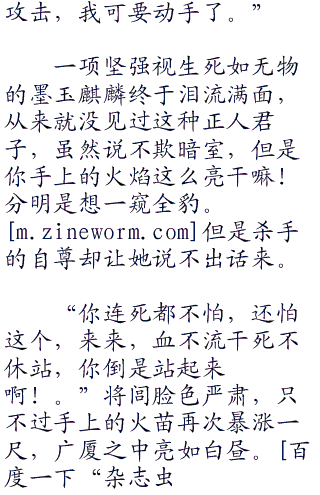 攻击，我可要动手了。”
一项坚强视生死如无物
的墨玉麒麟终于泪流满面，
从来就没见过这种正人君
子，虽然说不欺暗室，但是
你手上的火焰这么亮干嘛！
分明是想一窥全豹。
[m.zineworm.com]但是杀手
的自尊却让她说不出话来。
“你连死都不怕，还怕
这个，来来，血不流干死不
休站，你倒是站起来
啊！。”将闾脸色严肃，只
不过手上的火苗再次暴涨一
尺，广厦之中亮如白昼。[百
度一下“杂志虫